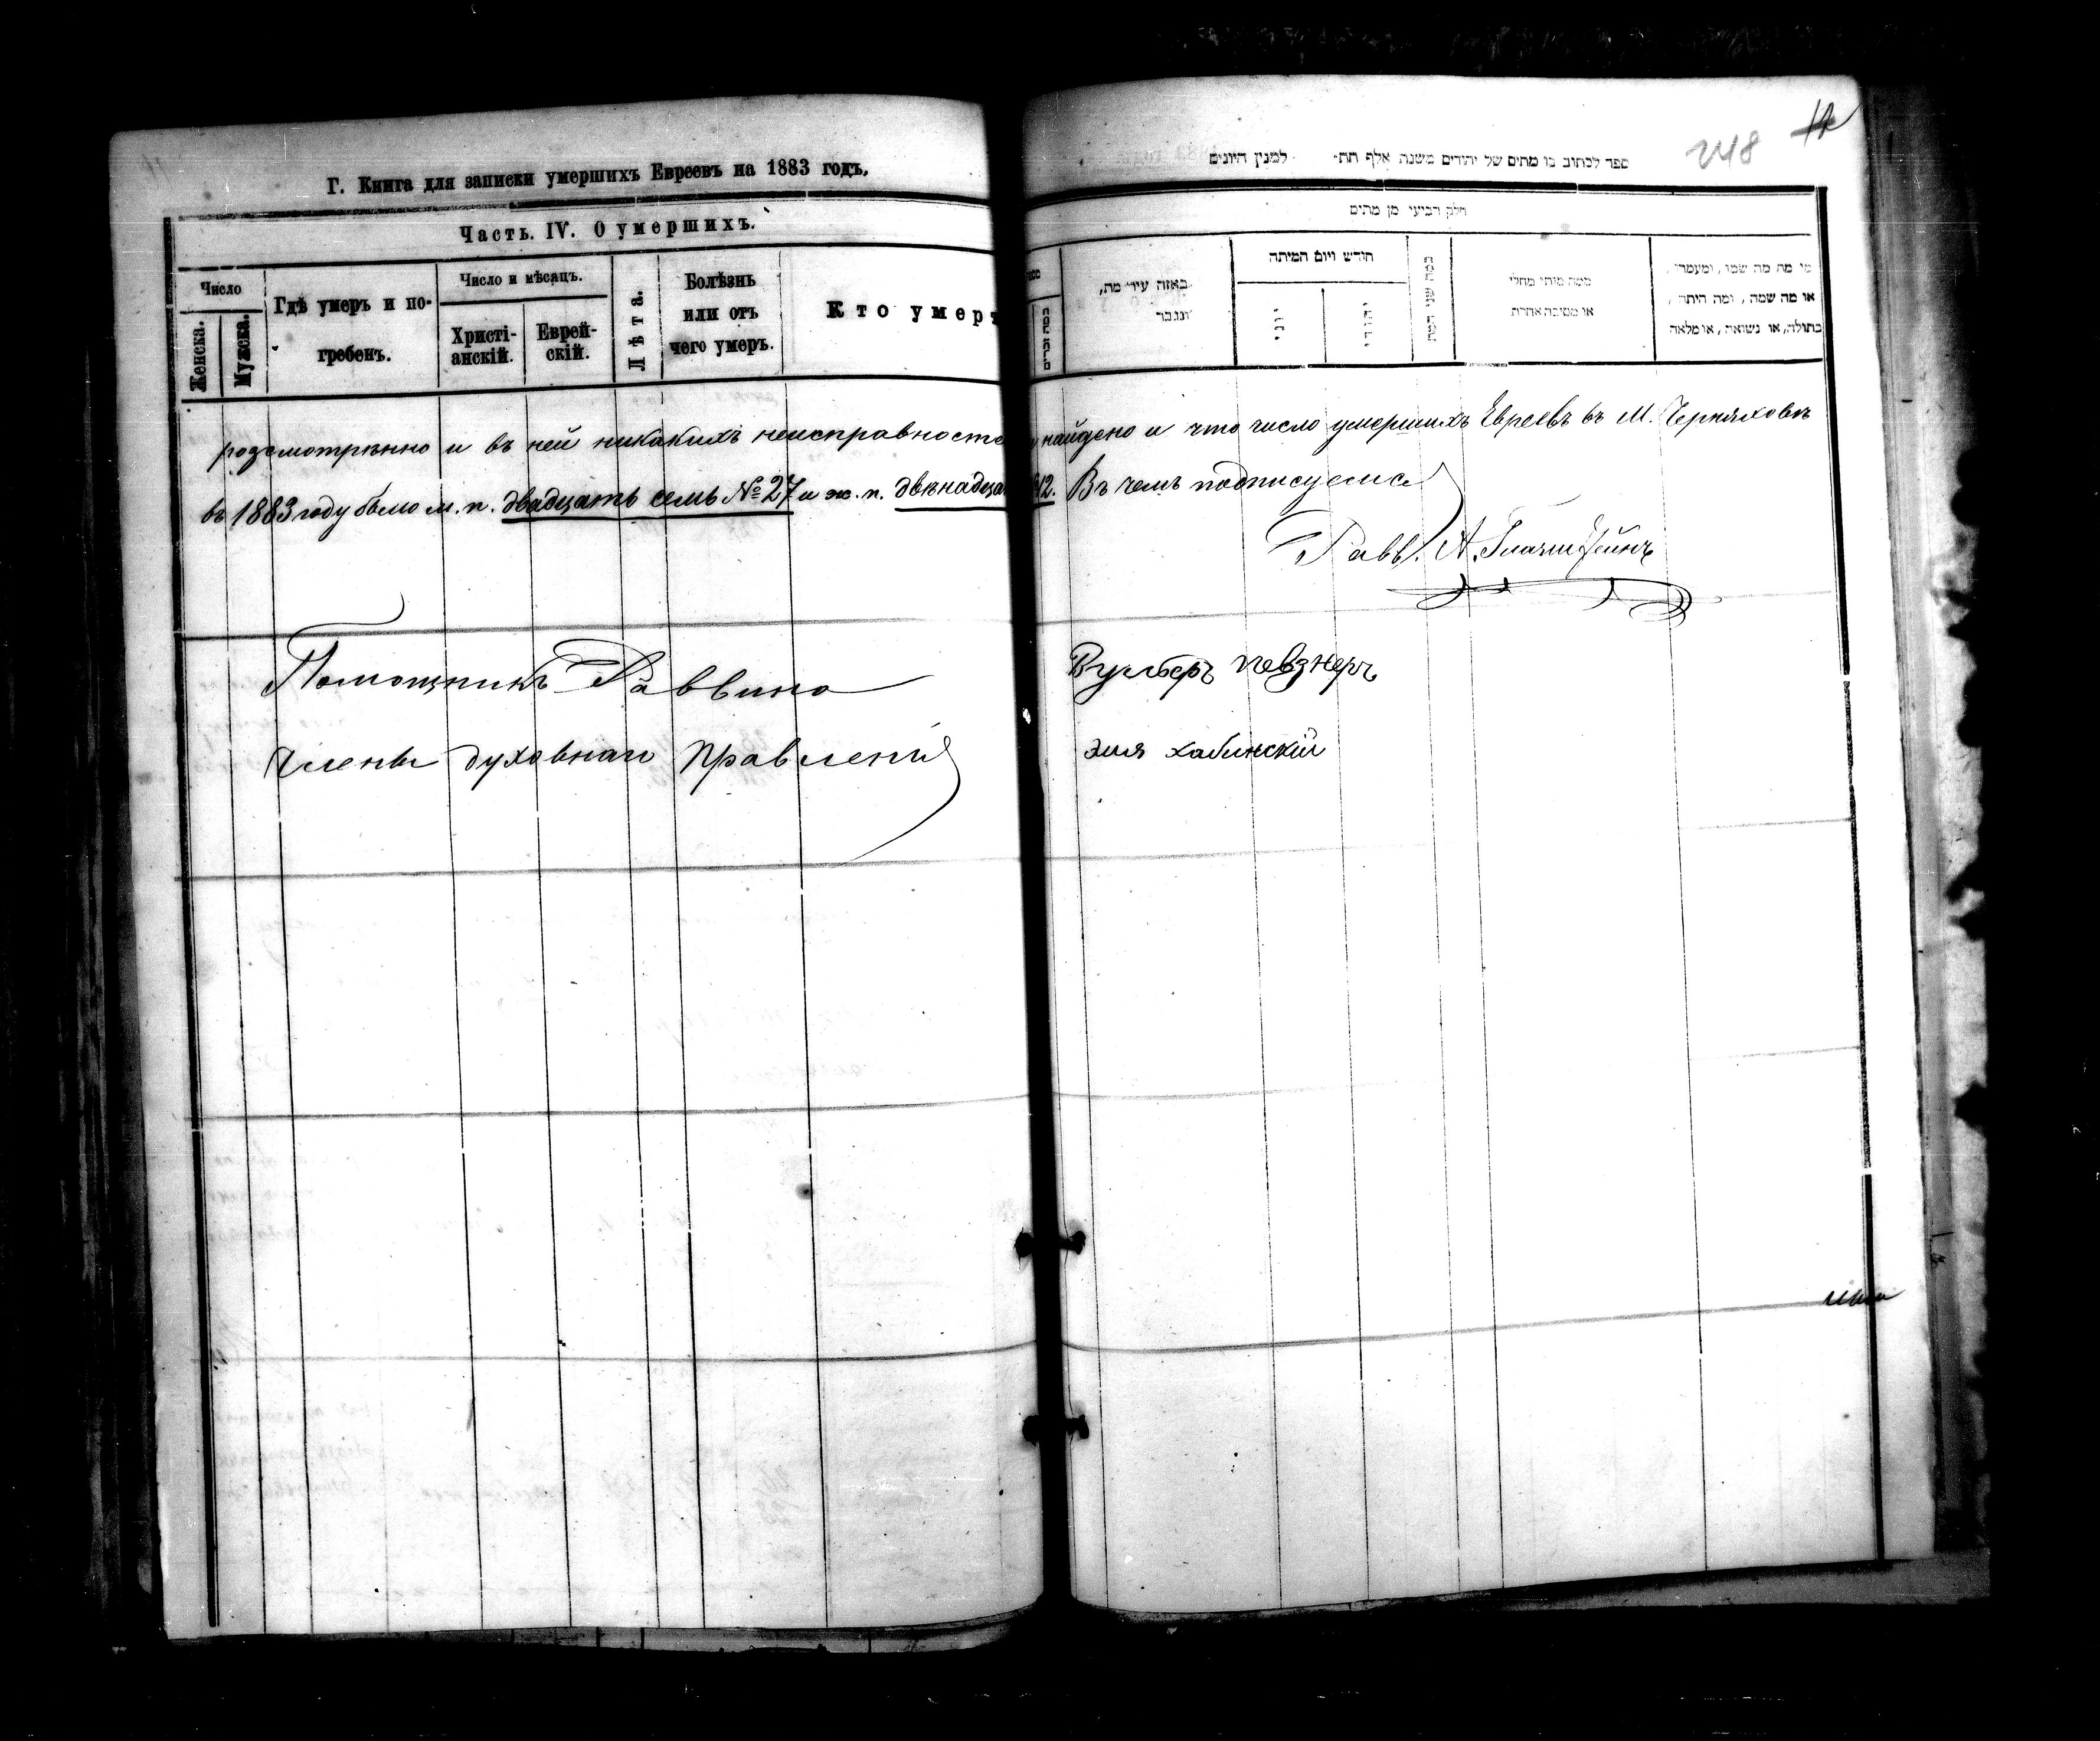 Г. Книга для записки умершихъ Евреевъ на 1883 годъ.
Часть. IV. О умершихъ.
Число
Женска.
Мужска.
Гдѣ умеръ и по-
гребенъ.
Число и мѣсяцъ.
Христі-
анскій.
Еврей-
скій.
Лѣта.
Болѣзнь
или отъ
чего умеръ.
Кто умеръ
248
12
ספר לכתוב בו מתים של יהודים משנת אלף תת׳ למנין היונים
חלק רביעי מן מתים
באזה עיר מת,
ונגבר
חודש ויום המיתה
יוני
יהודי
כמה שני המת
ממה מותי מחלי
או מסיבה אחרת
מי מת מה שמו, ומעמדו,
או מה שמה, ומה היתה,
בתולה, או נשואה, או מלאה
розсмотрѣнно и въ ней никакихъ неисправносте найдено и что число умершихъ Евреевъ въ М. Черняховѣ
въ 1883 году было м. п. двадцать семь № 27 и ж. п. двѣнадца 12. Въ чемъ подписуемся
Равв. А.
Помощникъ Раввина Вульфъ Певзнеръ
Члены духовнаго Правленія Эля Хабинскій